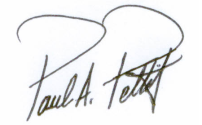 Paul A. Pettit